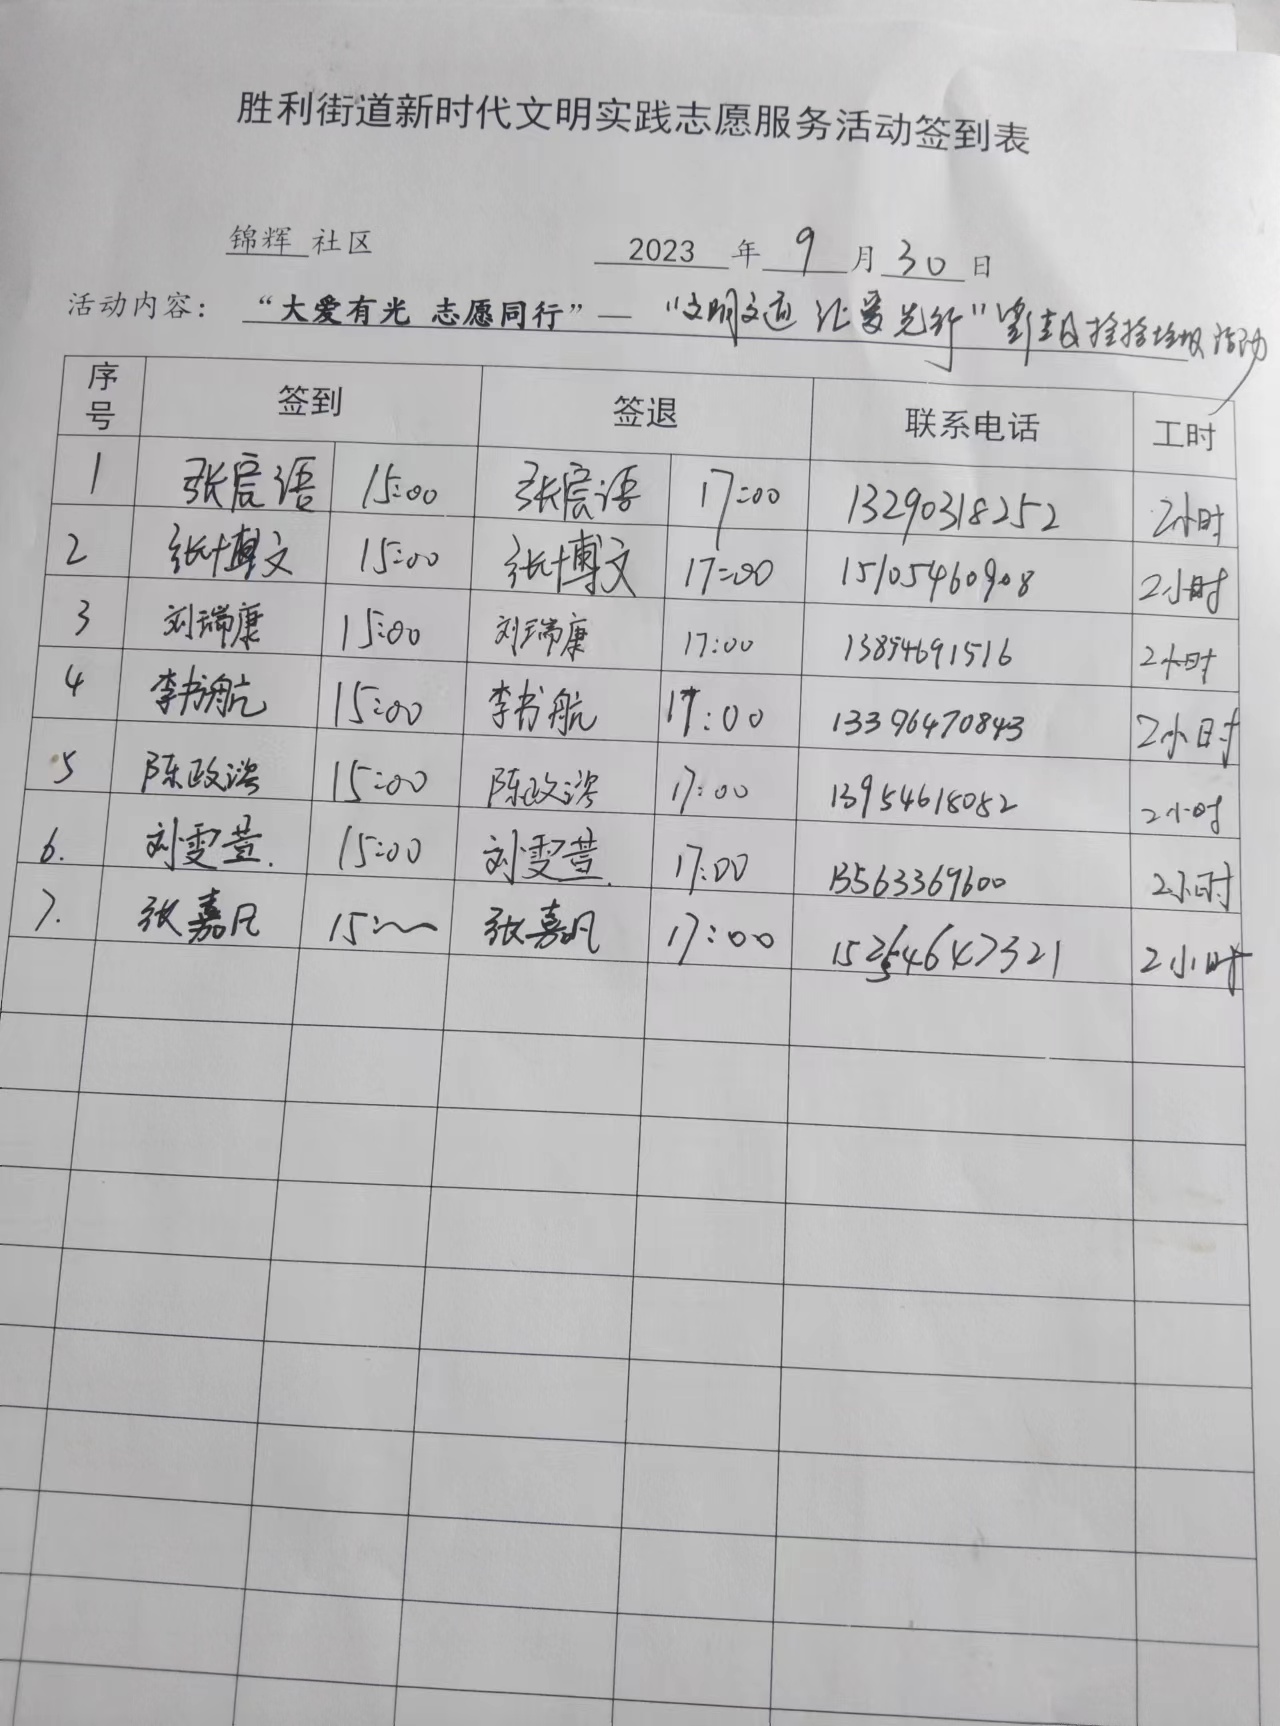 胜利街道新时代文明实践志愿服务活动签到表
锦辉 社区 2023 年 9 月 30 日
活动内容：“大爱有光 志愿同行”— “文明交通 让爱先行” 捡拾垃圾活动
序号 签到 签退 联系电话 工时
1 张宸语 15:00 张宸语 17:00 13290318252 2小时
2 张博文 15:00 张博文 17:00 15105460908 2小时
3 刘瑞康 15:00 刘瑞康 17:00 13854691516 2小时
4 李书航 15:00 李书航 17:00 13396470843 2小时
5 陈政 15:00 陈政 17:00 13954618082 2小时
6. 刘雯萱. 15:00 刘雯萱. 17:00 13563369600 2小时
7. 张嘉凡 15:~ 张嘉凡 17:00 2小时